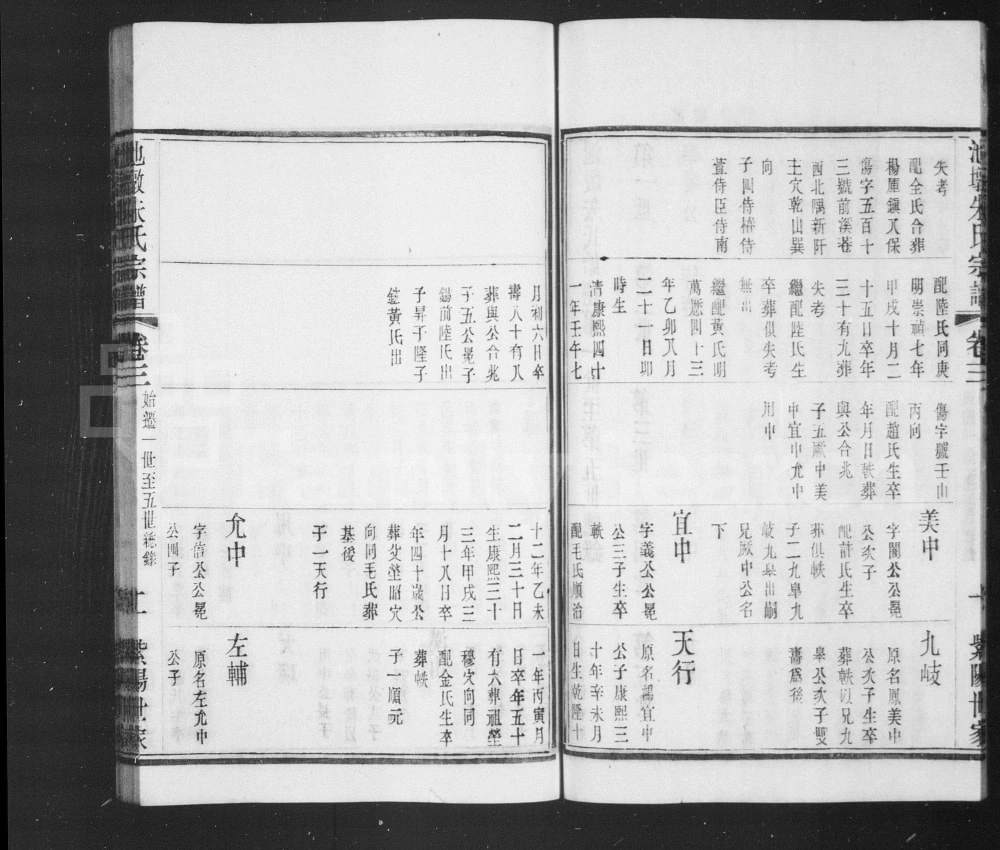 池墩朱氏宗譜
卷三
十
紫陽世家
失考
配全氏合葬
楊厙鎮又保
傷字五百十
三號前溪巷
西北隅新阡
主穴乾山巽
向
子四侍椿侍
萱侍臣侍南
配陸氏同庚
明崇禎七年
甲戌十月二
十五日卒年
三十有九葬
失考
繼配陸氏生
卒葬俱失考
無出
繼配黃氏明
萬懋四十三
年乙卯八月
二十一日卯
時生
清康熙四十
一年壬午七
傷字號壬山
丙向
配趙氏生卒
年月日軼葬
與公合兆
子五厥中美
中宜中允中
用中
美中
字闇公公冕
公次子
配許氏生卒
葬俱軼
子二九皐九
岐九皐出嗣
兄厥中公名
下
宜中
字義公公冕
公三子生卒
軼
配毛氏順治
九岐
原名鳳美中
公次子生卒
葬軼以兄九
皋公次子雙
壽爲後
天行
原名 宜中
公子康熙三
十年辛未月
日生乾隆十
月初六日卒
壽八十有八
葬與公合兆
子五公冕子
錫前陸氏出
子昇子隆子
鋐黃氏出
十二年乙未
二月三十日
生康熙三十
三年甲戌三
月十八日卒
年四十歲公
葬父塋昭穴
向同毛氏葬
基後
子一天行
允中
字信公公冕
公四子
一年丙寅月
日卒年五十
有六葬祖塋
穆穴向同
配金氏生卒
葬軼
子一順元
左輔
原名左允中
公子
池墩朱氏宗譜
卷三
始遷一世至五世總錄
十一
紫陽世家